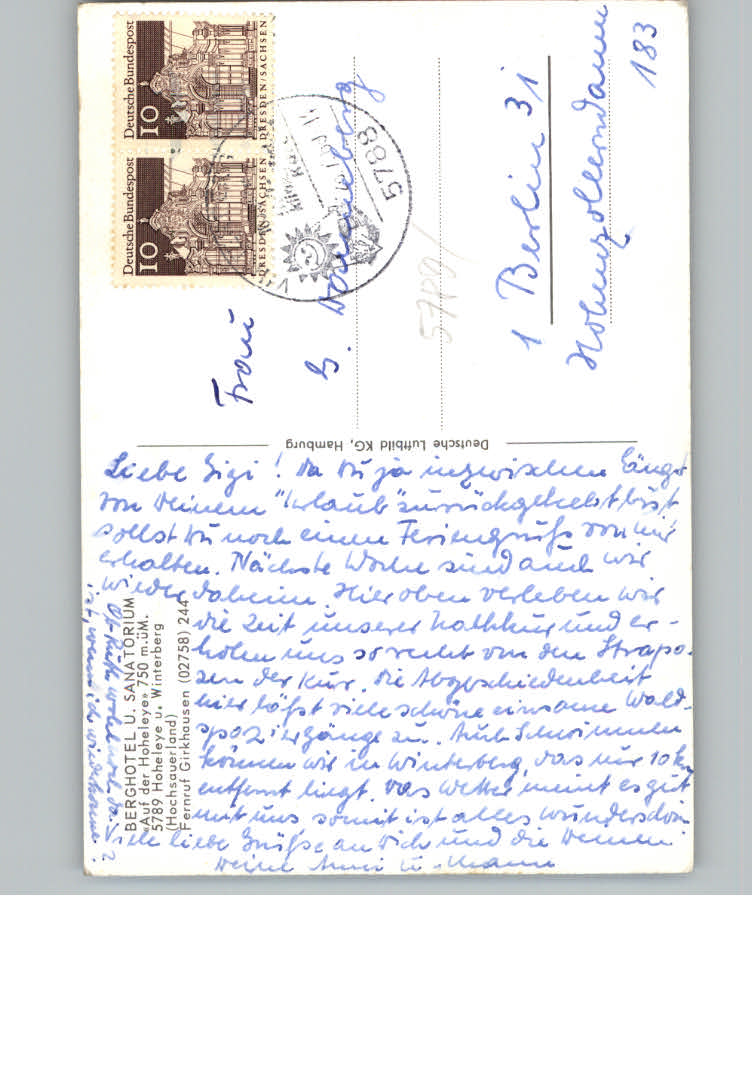 Deutsche Bundespost
10
DRESDEN/SACHSEN
Deutsche Bundespost
10
DRESDEN/SACHSEN
5788
Frau
G.
1 Berlin 31
Hohenzollerndamm
183
5789/
Deutsche Luftbild KG, Hamburg
BERGHOTEL U. SANATORIUM
«Auf der Hoheleye» 750 m.üM.
5789 Hoheleye u. Winterberg
(Hochsauerland)
Fernruf Girkhausen (02758) 244
Liebe Gigi! Da Du ja inzwischen längst
von Deinem "Urlaub" zurückgekehrt bist
sollst Du noch einen Feriengruß von mir
erhalten. Nächste Woche sind auch wir
wieder daheim. Hier oben verleben wir
die Zeit unserer Nachkur und er-
holen uns so recht von den Strapa-
zen der Kur. Die Abgeschiedenheit
hier läßt viele schöne einsame Wald-
spaziergänge zu. Auch Schwimmen
können wir in Winterberg, das nur 10 km
entfernt liegt. Das Wetter meint es gut
mit uns somit ist alles wunderschön
Viele liebe Grüße an Dich und die Deinen
Deine u.
wenn ich wiederkomme?